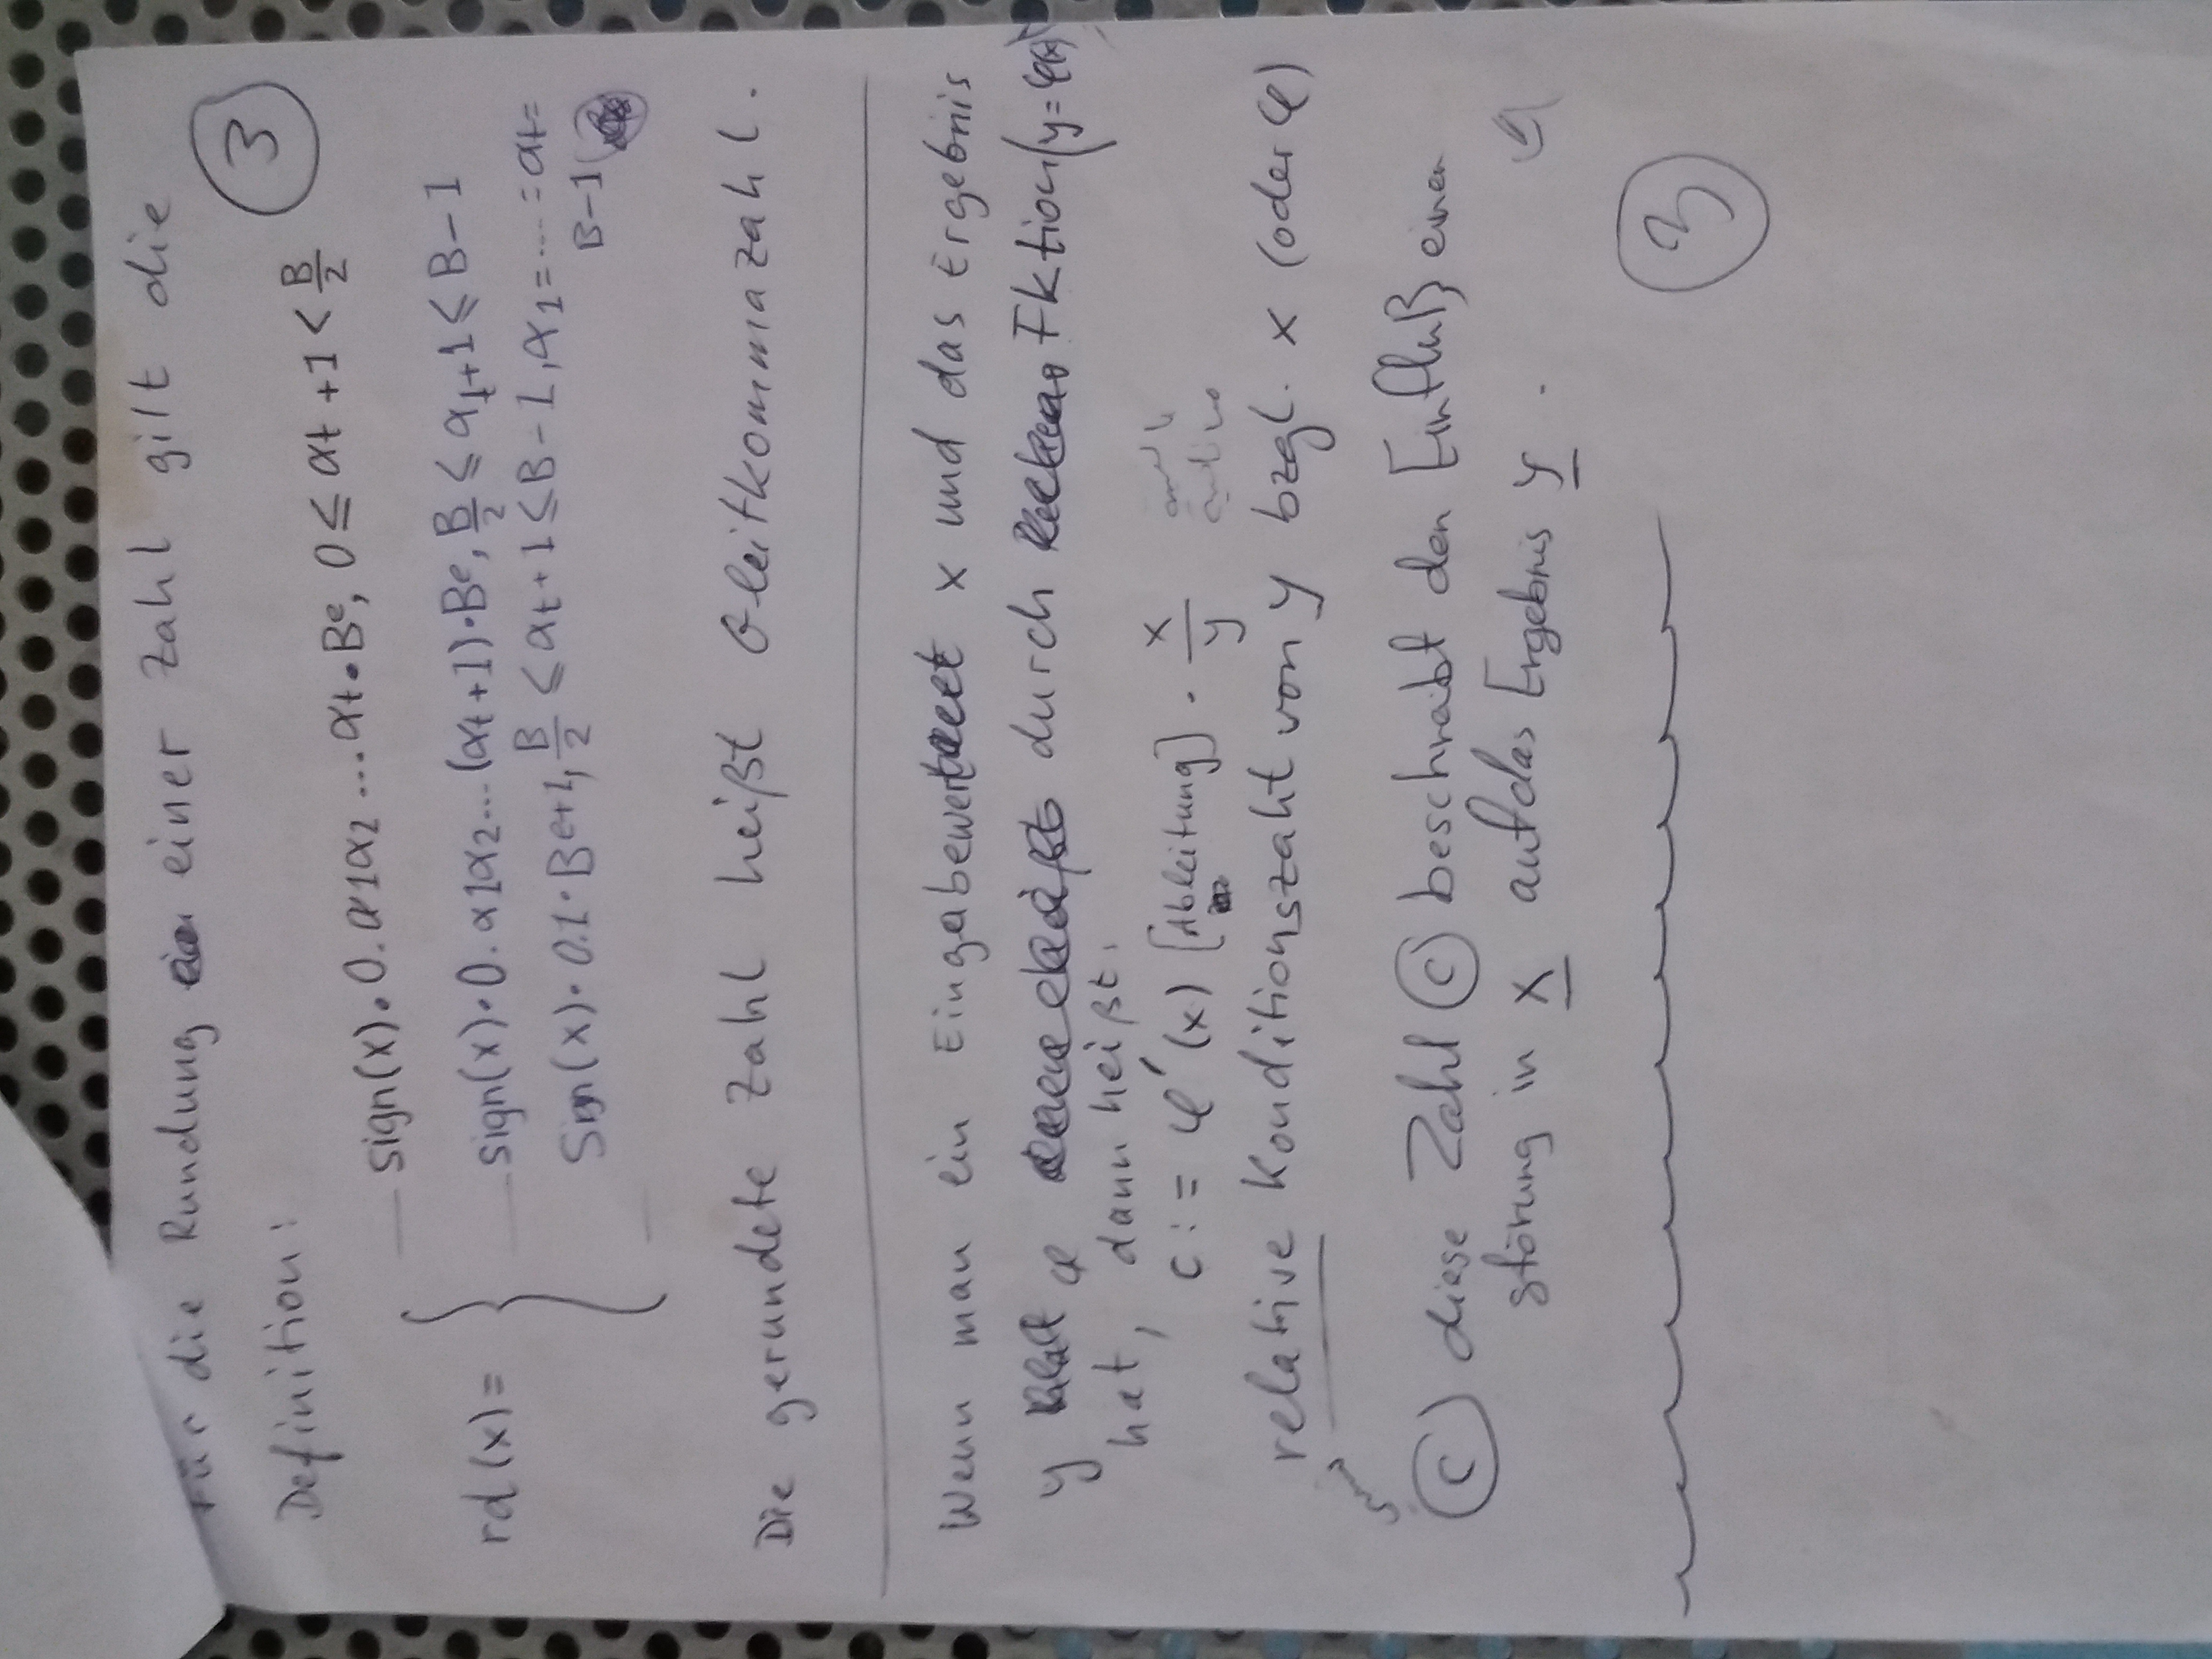 Für die Rundung einer Zahl gilt die
③
Definition:
sign(x)·0.α1α2...αt·Bᵉ, 0 ≤ αt+1 < B/2
rd(x) = { sign(x)·0.α1α2...(αt+1)·Bᵉ, B/2 ≤ αt+1 ≤ B-1
Sign(x)·0.1·Be+1, B/2 ≤ αt+1 ≤ B-1, α1=....=αt=
B-1
Die gerundete Zahl heißt Gleitkommazahl.
Wenn man ein Eingabewert x und das Ergebnis
y φ durch Fktion (y=φ(x))
hat, dann heißt:
c := φ'(x) [Ableitung] · x/y
relative Konditionszahl von y bzgl. x (oder φ)
Ⓒ diese Zahl Ⓒ beschreibt den Einfluß einer
störung in x auf das Ergebnis y.
③